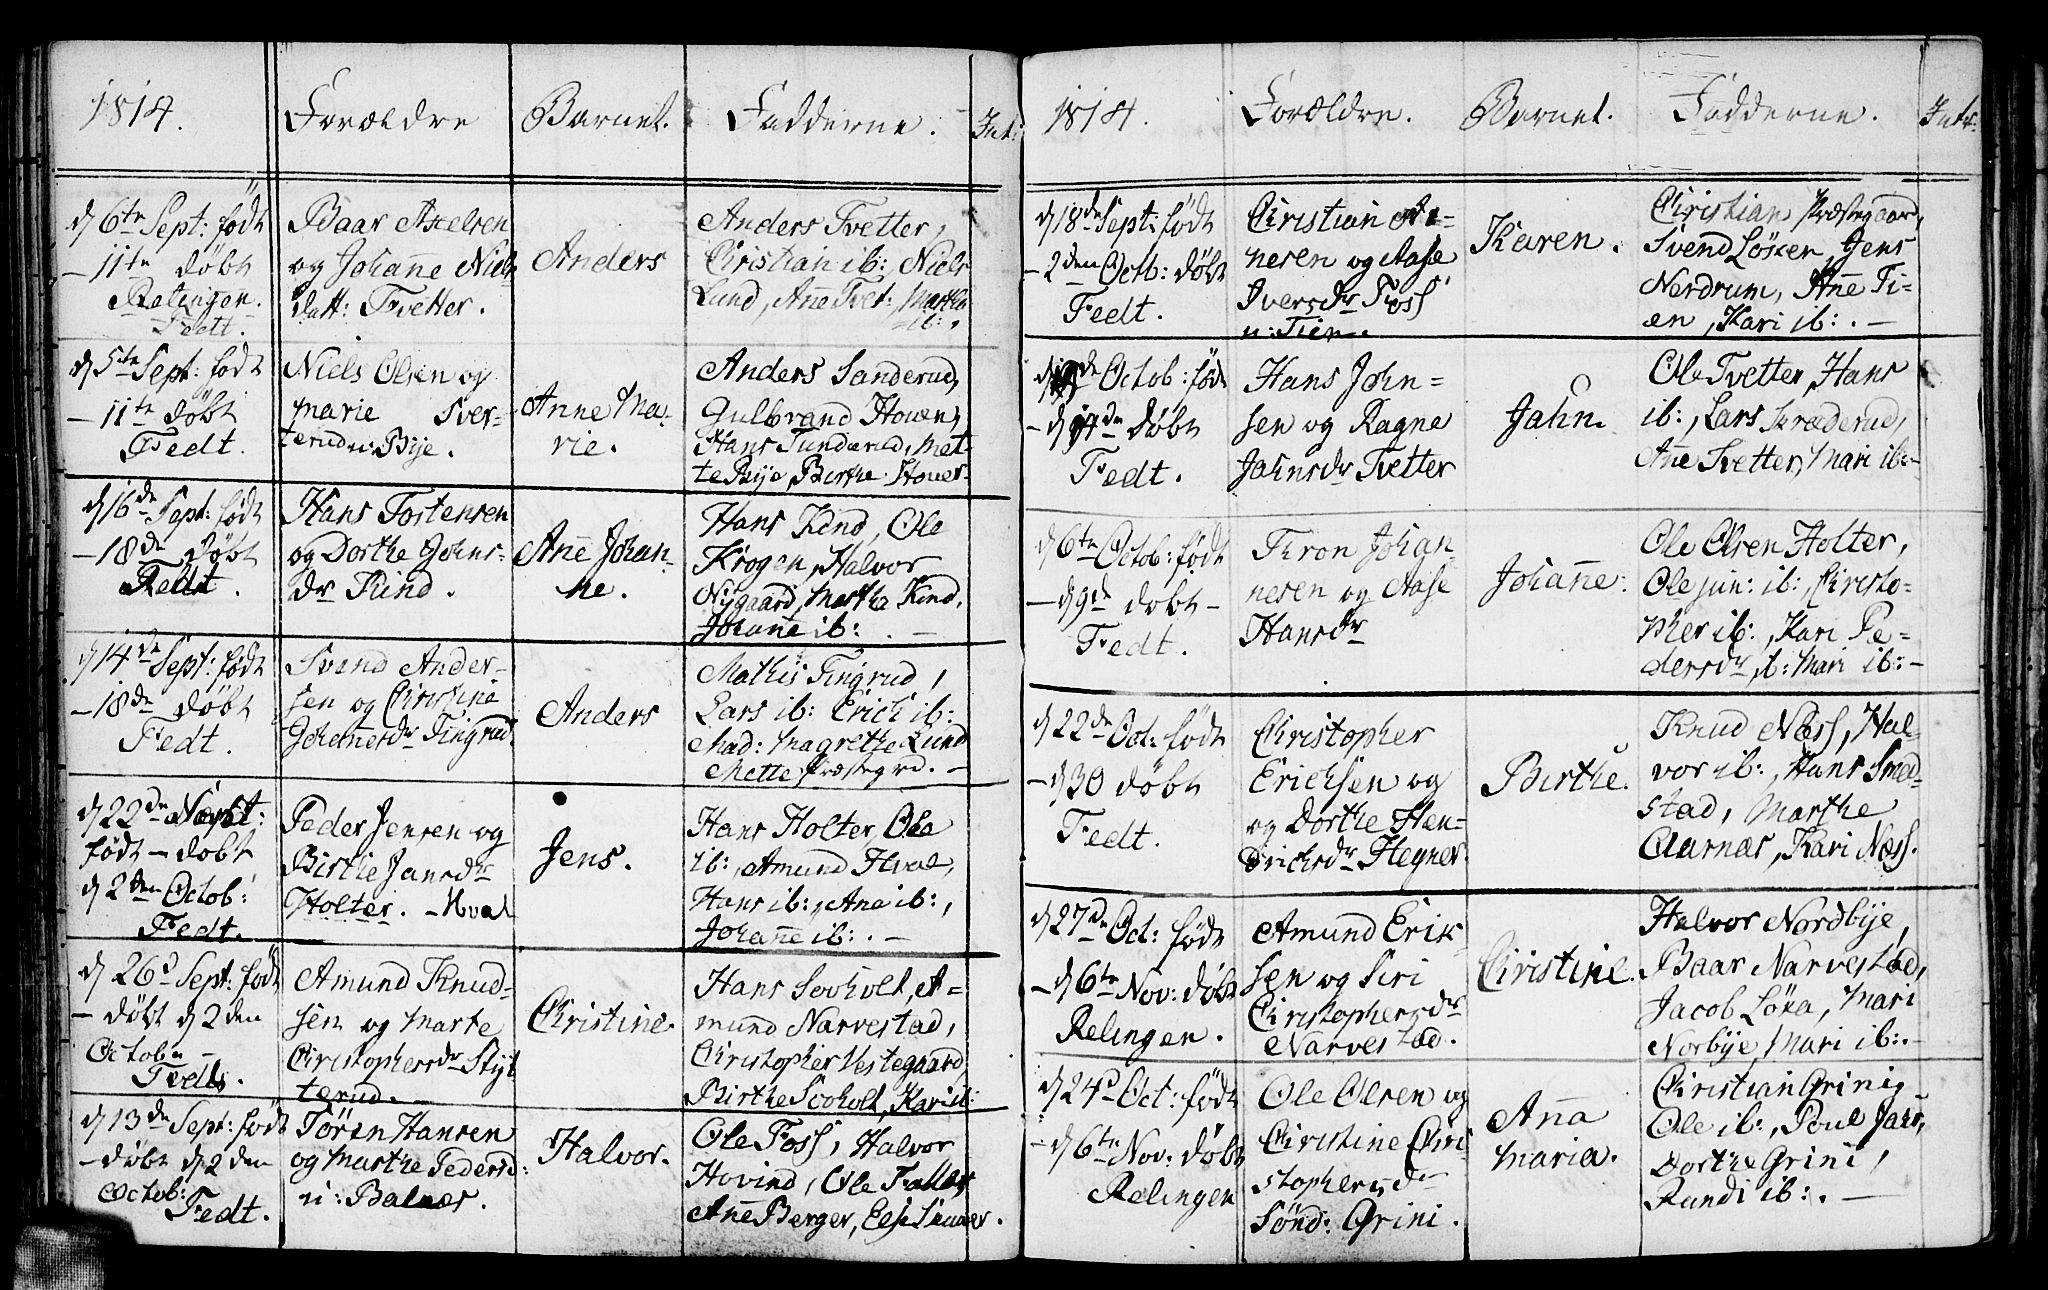 1814.
Forældre
Barnet.
Fadderne.
Int:
d 6te Sept: født
– 11te døbt
Relingen.
Fedt.
Baar Axelsen
og Johan̄e Niels
datt: Tvetter.
Anders
Anders Tvetter,
Christian ib:, Niels
Lund, An̄e Tvet:, Marthe
ib:.
d 5te Sept: født
– 11te døbt
Fedt.
Niels Olsen og
Marie Sver-
terud u: Bije.
Anne Ma-
rie.
Anders Sanderud,
Gulbrand Houen,
Hans Tunderud, Met-
te Bije, Birthe Houer-
d 16de Sept: født
– 18de døbt
Fedt.
Hans Tostensen
og Dorthe Johns-
dr Kind.
An̄e Johan-
ne.
Hans Kind, Ole
Krogen, Halvor
Nygaard, Martha Kind,
Johan̄e ib: . –
d 14de Sept: født
– 18de døbt
Fedt.
Svend Ander-
sen og Christine
Johan̄esdr Tingrud.
Anders
Mathis Tingrud,
Lars ib: Erich ib:
Mad: Magrethe Lund
Mette Præstegrd. –
d 22de Sept:
født – døbt
d 2den Octob:
Fedt.
Peder Jensen og
Birthe Jansdr
Holter. – Hval
Jens.
Hans Holter, Ole
ib:, Amund Hval,
Hans ib:, Ane ib:,
Johan̄e ib: . –
d 26d Sept: født
– døbt d 2den
Octobr –
Fedt.
Amund Knud-
sen og Marte
Christophersdr Styt
terud. –
Christine.
Hans Sovholt, A-
mund Narvestad,
Christopher Vestegaard,
Birthe Sovholt, Kari ib:
d 13de Sept: født
– døbt d 2den
Octob:
Fedt.
Tören Hansen
og Marthe Pedersd:
u: Balnæs.
Halvor.
Ole Foss, Halvor
Hovind, Ole Faller
An̄e Berger, Else
1814.
Forældre.
Barnet.
Fadderne.
Intr:
d 18de Sept: født
– 2den Octb: døbt
Fedt.
Christian Ar-
nesen og Aase
Iversdr Foss
u: Tien.
Karen.
Christian Præstegaard,
Svend Löken, Jens
Nerdrum, An̄e Ti-
en, Kari ib: . –
Octob: født
– d 9de døbt
Fedt.
Hans John-
sen og Ragne
Jahnsdr Tvetter
Jahn.
Ole Tvetter, Hans
ib:, Lars Kræderud,
An̄e Tvetter, Mari ib: –
d 6te Octob: født
– d 9de døbt –
Fedt.
Thron Johan-
nesen og Aase
Hansdr
Johan̄e.
Ole Olsen Holter,
Ole jun: ib:, Christo-
pher ib:, Kari Pe-
dersdr ib: Mari ib: –
d 22de Oct: født
– d 30 døbt
Fedt.
Christopher
Ericksen og
og Dorthe Hen-
drichsdr Hegner.
Birthe.
Knud Næss, Hal-
vor ib:, Hans Smed-
stad, Marthe
Aarnæs, Kari Næss.
d 27de Oct: født
– d 6te Nov: døbt
Relingen.
Amund Erik
sen og Siri
Christophersdr
Narvestad.
Christine.
Halvor Nordbije,
Baar Narvestad,
Jacob Löka, Mari
Norbije, Mari ib: –
d 24d Oct: født
– d 6te Nov: døbt
Relingen
Ole Olsen og
Christine Chri-
stophersdr
Sönd: Grini.
An̄a
Maria.
Christian Grinig
Ole ib:, Poul Jahr,
Dorthe Grini,
Randi ib: . –